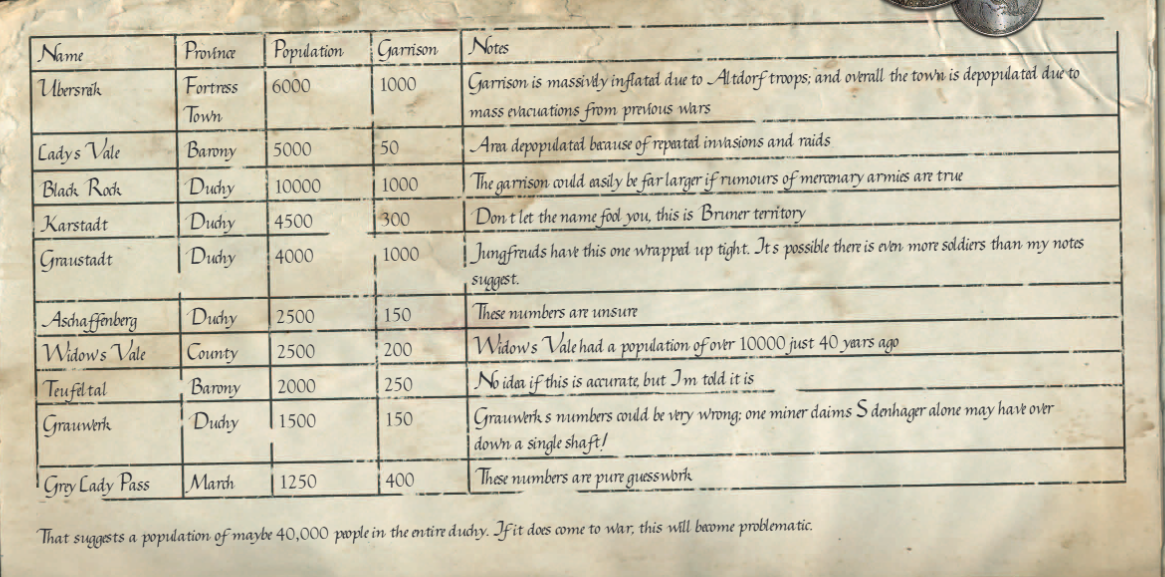 Name Province Population Garrison Notes
Ubersreik Fortress 6000 1000 Garrison is massively inflated due to Altdorf troops; and overall the town is depopulated due to
Town mass evacuations from previous wars
Lady s Vale Barony 5000 50 Area depopulated because of repeated invasions and raids
Black Rock Duchy 10000 1000 The garrison could easily be far larger if rumours of mercenary armies are true
Karstadt Duchy 4500 300 Don t let the name fool you, this is Bruner territory
Graustadt Duchy 4000 1000 Jungfreuds have this one wrapped up tight. It s possible there is even more soldiers than my notes
suggest.
Aschaffenberg Duchy 2500 150 These numbers are unsure
Widow s Vale County 2500 200 Widow s Vale had a population of over 10000 just 40 years ago
Teufeltal Barony 2000 250 No idea if this is accurate, but I m told it is
Grauwerk Duchy 1500 150 Grauwerk s numbers could be very wrong; one miner claims S denhager alone may have over
down a single shaft!
Grey Lady Pass March 1250 400 These numbers are pure guesswork
That suggests a population of maybe 40,000 people in the entire duchy. If it does come to war, this will become problematic.